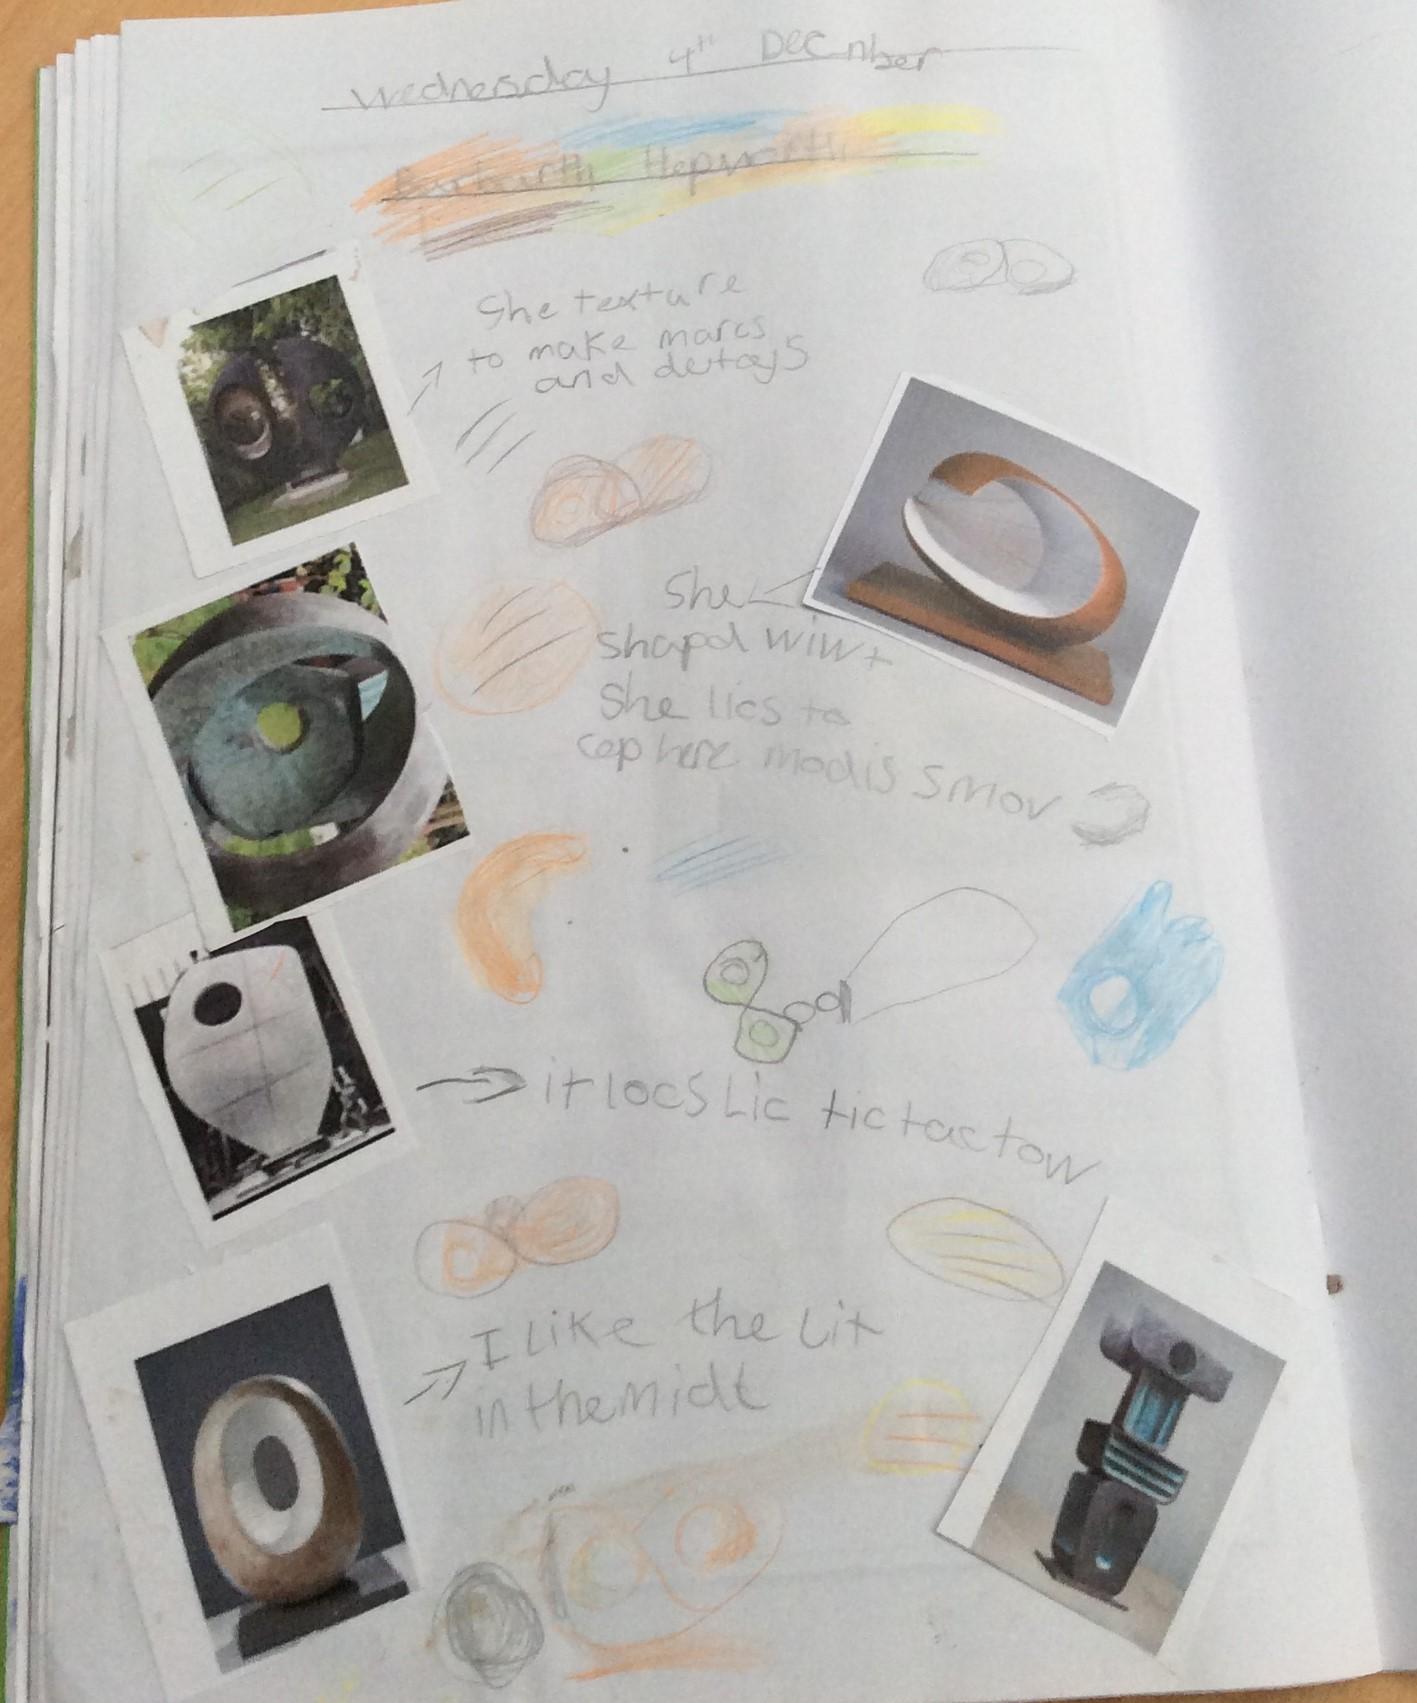 Wednesday 4th Decmber
Barbarth Hepworth
She texture
to make marcs
and detays
She
shapd wiwt
She lics to
cep here modis smov
it locs Lic tictactow
I Like the Lit
in the midt